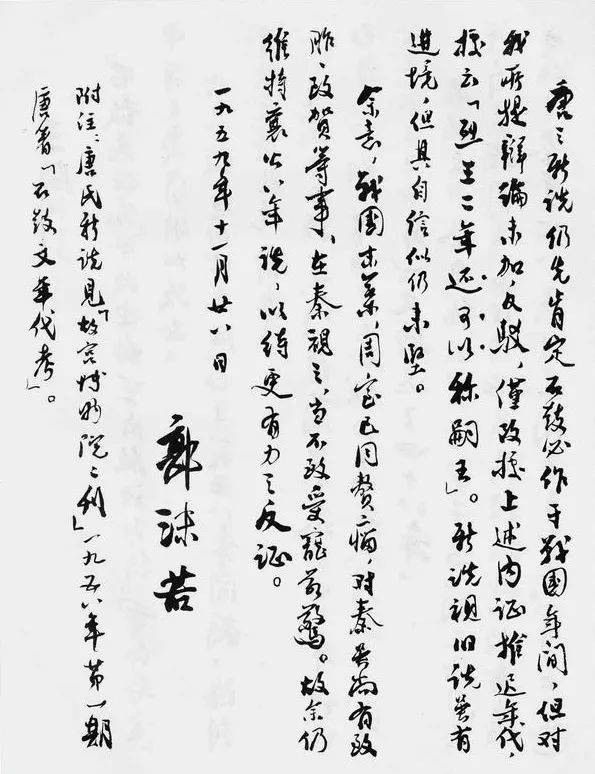 唐之新说仍先肯定石鼓必作于戰國年间，但对
我所提辯論未加反駁，僅改据上述内证推迟年代，
据云「烈王二年还可以称嗣王」。新说視旧说虽有
進境，但其自信似仍未坚。
余意，戰國末葉，周室已同贅瘤，对秦若尚有致
胙、致賀等事，在秦視之，当不致受寵若驚。故余仍
維持襄公八年说，以待更有力之反证。
一九五九年十一月廿八日
郭沫若
附注：唐氏新说見「故宫博物院々刊」一九五八年第一期
唐著「石鼓文年代考」。